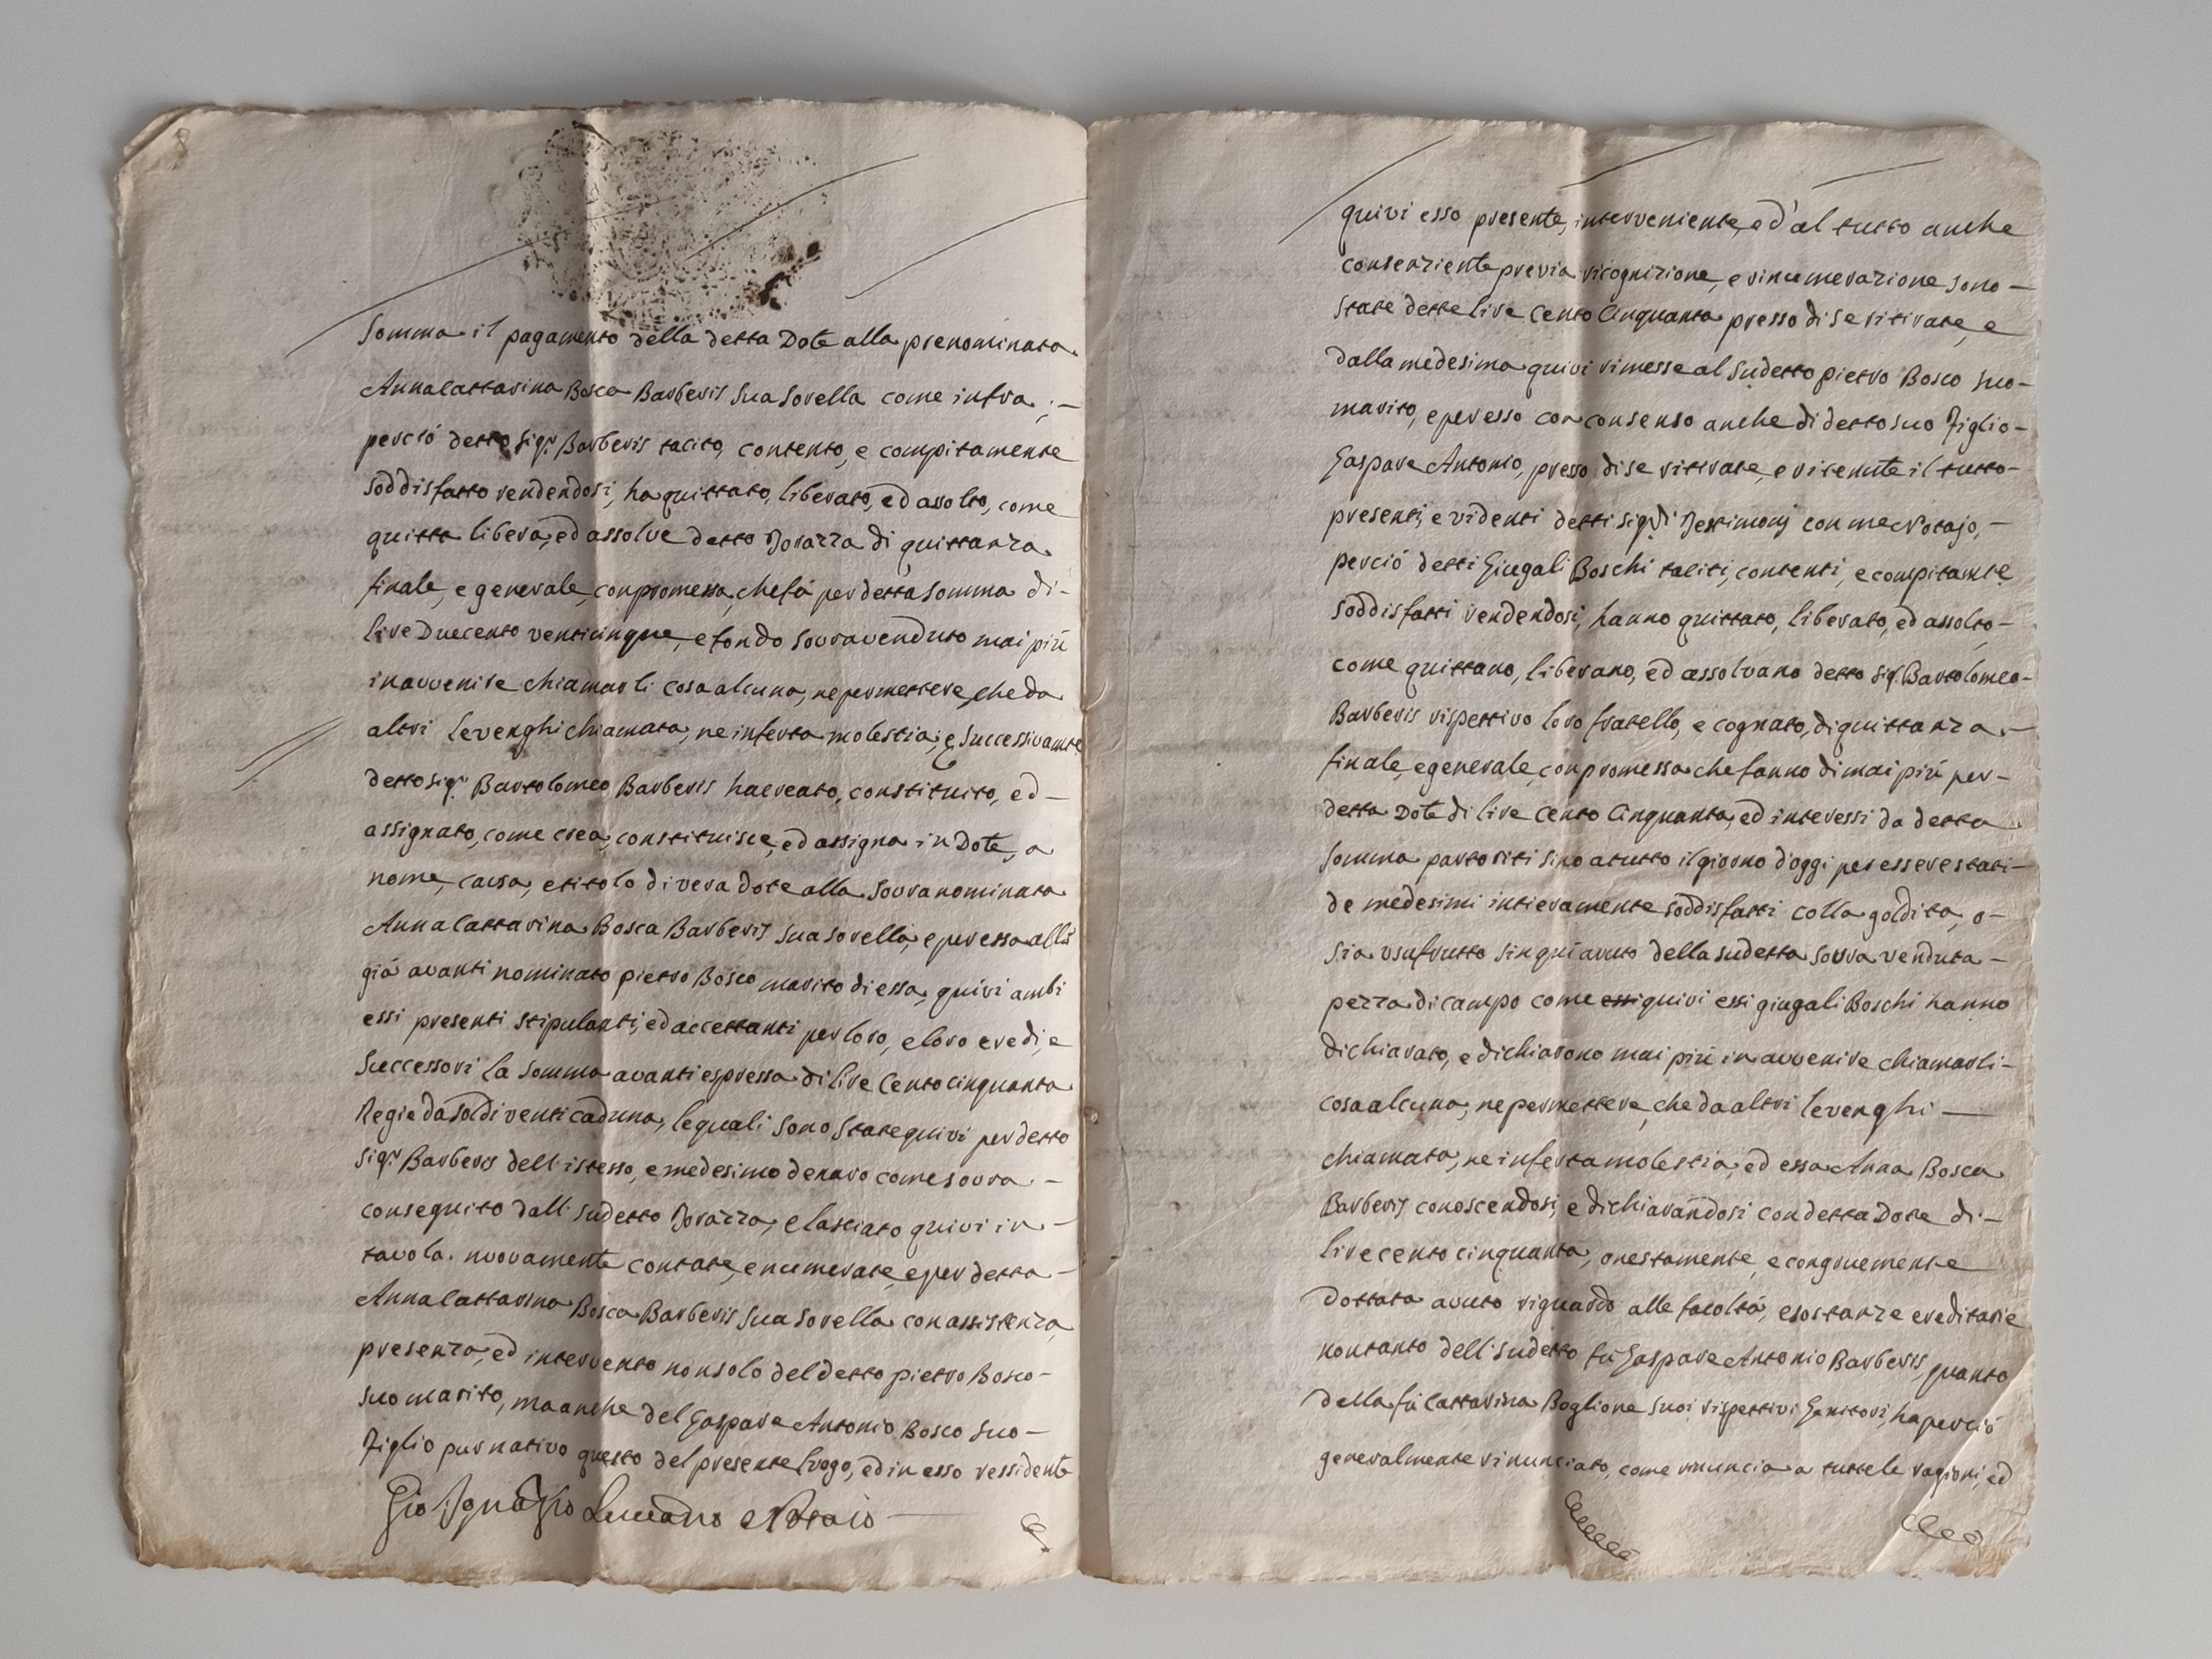 8
Somma il pagamento della detta Dote alla prenominata
Anna Cattarina Bosca Barberis Sua Sorella come infra ; —
perciò detto Sig.r Barberis tacito, contento, e compitamente
soddisfatto rendendosi, ha quittato, liberato, ed assolto, come
quitta libera, ed assolve detto Tovazza di quittanza
finale, e generale, con promessa, che fà per detta Somma di –
lire Duecento venticinque, e fondo Sovravenduto mai più
in avvenire chiamarli cosa alcuna, ne permettere, che da
altri Le venghi chiamata, ne inferta molestia; e Successivam.te
detto Sig.r Bartolomeo Barberis ha creato, constituito, ed —
assignato, come crea, constituisce, ed assigna in Dote, a
nome, causa, e titolo di vera dote alla Sovranominata
Anna Cattarina Bosca Barberis Sua Sorella, e per essa alli
già avanti nominato pietro Bosco marito di essa, quivi ambi
essi presenti stipulanti, ed accettanti per loro, e loro eredi, e
Successori la Somma avanti espressa di lire Cento cinquanta
Regie da Soldi venti caduna, le quali sono state quivi per detto
Sig.r Barberis dell'istesso, e medesimo denaro come sovra —
conseguito dall'sudetto Tovazza, e lasciato quivi in —
tavola. nuovamente contate, e numerate, e per detta —
Anna Cattarina Bosca Barberis Sua Sorella con assistenza,
presenza, ed intervento non solo del detto pietro Bosco –
suo marito, ma anche del Gaspare Antonio Bosco Suo –
Figlio pur nativo questo del presente Luogo, ed in esso ressidente
Gio Ignazio Luciano Notaio
quivi esso presente, interveniente, ed'al tutto anche
consenziente previa ricognizione, e rinumerazione sono —
state dette lire Cento Cinquanta presso di Se ritirate, e
dalla medesima quivi rimesse al Sudetto pietro Bosco suo –
marito, e per esso con consenso anche di detto suo Figlio –
Gaspare Antonio, presso di se ritirate, e ritenute il tutto –
presenti, e videnti detti Sig.ri Testimonj con me Notajo, –
perciò detti Giugali Boschi taciti, contenti, e compitam.te
soddisfatti rendendosi, hanno quittato, liberato, ed assolto –
come quittano, liberano, ed assolvano detto Sig.r Bartolomeo –
Barberis rispettivo loro fratello, e cognato, di quittanza –
finale, e generale, con promessa che fanno di mai più per –
detta Dote di lire Cento Cinquanta, ed interessi da detta
Somma partoriti sino a tutto il giorno d'oggi per essere stati –
de medesimi intieramente soddisfatti colla goldita, o –
sia usufrutto sin qui avuto della sudetta sovra venduta –
pezza di campo come essi quivi essi giugali Boschi hanno
dichiarato, e dichiarono mai più in avvenire chiamarli –
cosa alcuna, ne permettere, che da altri le venghi —
chiamata, ne inferta molestia, ed essa Anna Bosca
Barberis conoscendosi, e dichiarandosi con detta Dote di –
lire cento cinquanta, onestamente, e congruemente
Dottata avuto riguardo alle facoltà, e sostanze ereditarie
non tanto dell'sudetto fù Gaspare Antonio Barberis, quanto
della fù Cattarina Boglione Suoi rispettivi Genitori, ha perciò
generalmente rinunciato, come rinuncia a tutte le ragioni, ed